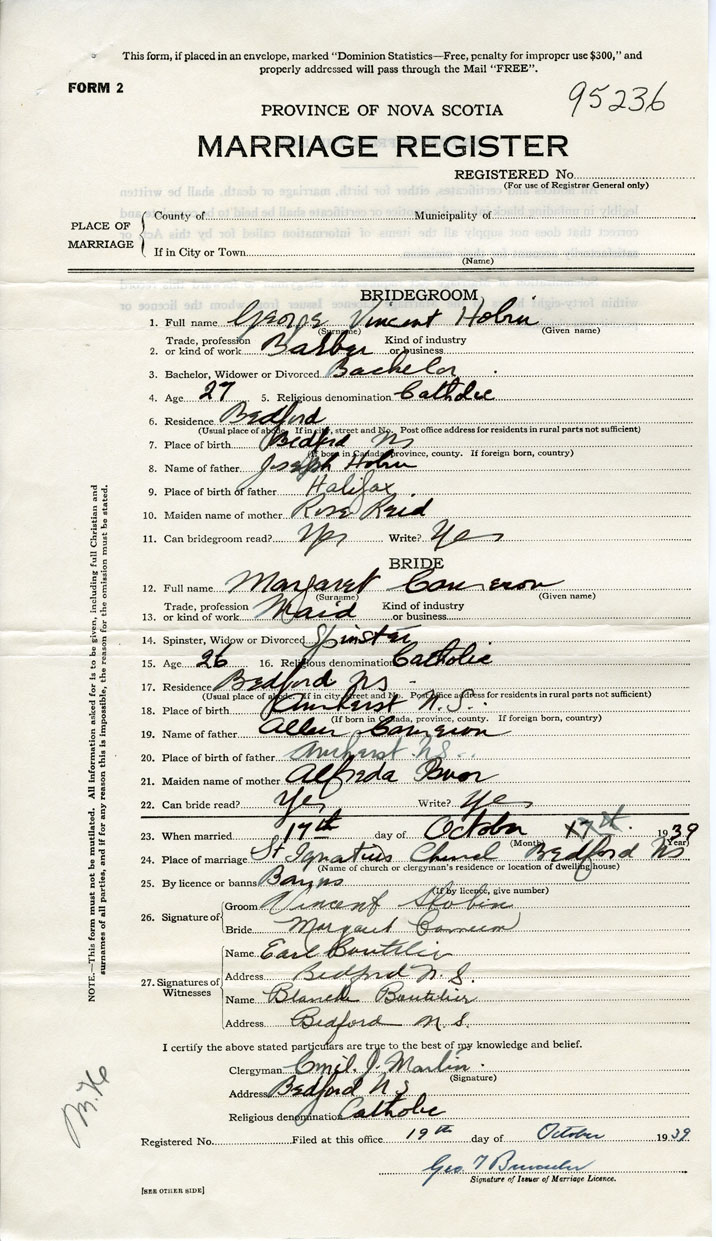 This form, if placed in an envelope, marked "Dominion Statistics—Free, penalty for improper use $300," and
properly addressed will pass through the Mail "FREE".
FORM 2
95236
PROVINCE OF NOVA SCOTIA
MARRIAGE REGISTER
REGISTERED No.
(For use of Registrar General only)
PLACE OF MARRIAGE
County of
Municipality of
If in City or Town
(Name)
BRIDEGROOM
1. Full name George Vincent Hobin
(Surname) (Given name)
Trade, profession Kind of industry
2. or kind of work Barber or business
3. Bachelor, Widower or Divorced Bachelor
4. Age 27 5. Religious denomination Catholic
6. Residence Bedford
(Usual place of abode. If in city, street and No. Post office address for residents in rural parts not sufficient)
7. Place of birth Bedford NS
(If born in Canada, province, county. If foreign born, country)
8. Name of father Joseph Hobin
9. Place of birth of father Halifax
10. Maiden name of mother Rose Reid
11. Can bridegroom read? Yes Write? Yes
BRIDE
12. Full name Margaret Cameron
(Surname) (Given name)
Trade, profession Kind of industry
13. or kind of work Maid or business
14. Spinster, Widow or Divorced Spinster
15. Age 26 16. Religious denomination Catholic
17. Residence Bedford NS
(Usual place of abode. If in city, street and No. Post office address for residents in rural parts not sufficient)
18. Place of birth Amherst N.S.
(If born in Canada, province, county. If foreign born, country)
19. Name of father Allen Cameron
20. Place of birth of father Amherst N.S.
21. Maiden name of mother Alfreda
22. Can bride read? Yes Write? Yes
23. When married 17th day of October 1939
(Month) (Year)
24. Place of marriage St Ignatius Church Bedford NS
(Name of church or clergyman's residence or location of dwelling house)
25. By licence or banns Banns
(If by licence, give number)
26. Signature of
Groom Vincent Hobin
Bride Margaret Cameron
27. Signatures of Witnesses
Name Earl Boutilier
Address Bedford N.S.
Name Blanche Boutilier
Address Bedford N.S.
I certify the above stated particulars are true to the best of my knowledge and belief.
Clergyman Emil J. Martin
(Signature)
Address Bedford NS
Religious denomination Catholic
Registered No. Filed at this office 19th day of October 1939
Geo T
Signature of Issuer of Marriage Licence.
[SEE OTHER SIDE]
NOTE.—This form must not be mutilated. All information asked for is to be given, including full Christian and
surnames of all parties, and if for any reason this is impossible, the reason for the omission must be stated.